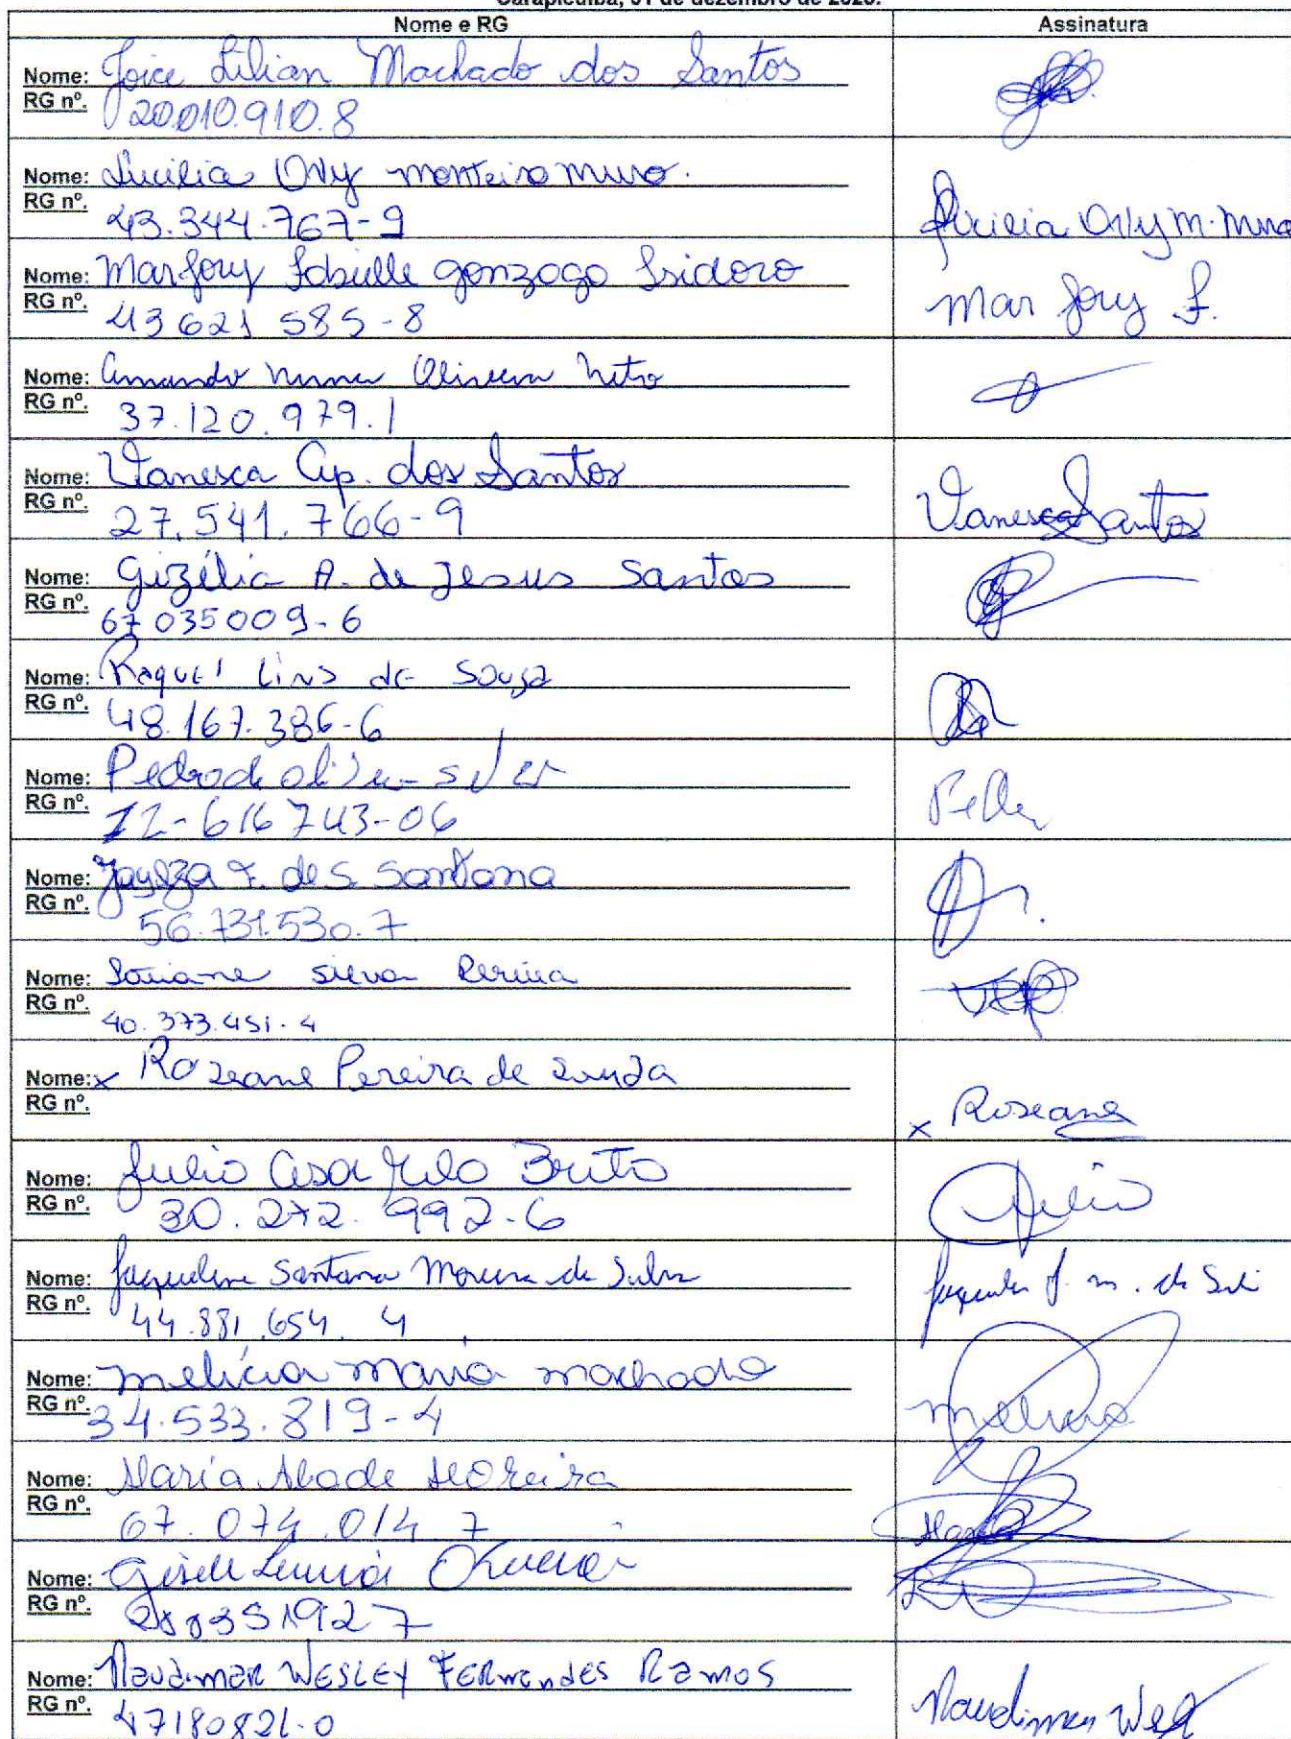 Carapicuíba, 01 de dezembro de 2023.
Nome e RG Assinatura
Nome: Joice Lilian Machado dos Santos
RG nº. 20.010.910.8
Nome: Lucilia Ovy monteiro muro.
RG nº. 43.344.767-9
Lucilia Ovy M. Muro
Nome: Marjory Isbuelle gonzaga Isidoro
RG nº. 43 621 585-8
Marjory I.
Nome: Amando Nunes Oliveira Neto
RG nº. 37.120.979.1
Nome: Vanesca Ap. dos Santos
RG nº. 27.541.766-9
Vanesca Santos
Nome: Gizélia A. de Jesus Santos
RG nº. 67 035009-6
Nome: Raquel Lins de Souza
RG nº. 48.167.386-6
Nome: Pedro de
RG nº. 12-616743-06
Nome: F. de S. Santana
RG nº. 56.731.530.7
Nome: silva Pereira
RG nº. 40.373.451.4
Nome: x Rozeane Pereira de Souza
RG nº.
x Roseane
Nome: Julio Cesar Brito
RG nº. 30.272.992-6
Julio
Nome: Jaqueline Santana Moreira da Silva
RG nº. 44.881.654.4
Nome: melicia maria machado
RG nº. 34.533.819-4
melicia
Nome: Maria Abade Moreira
RG nº. 67.074.014 7
Maria
Nome: Gisele Oliveira
RG nº.
Nome: Naudimar WESLEY FERNANDES RAMOS
RG nº. 47180821-0
Naudimar Wes